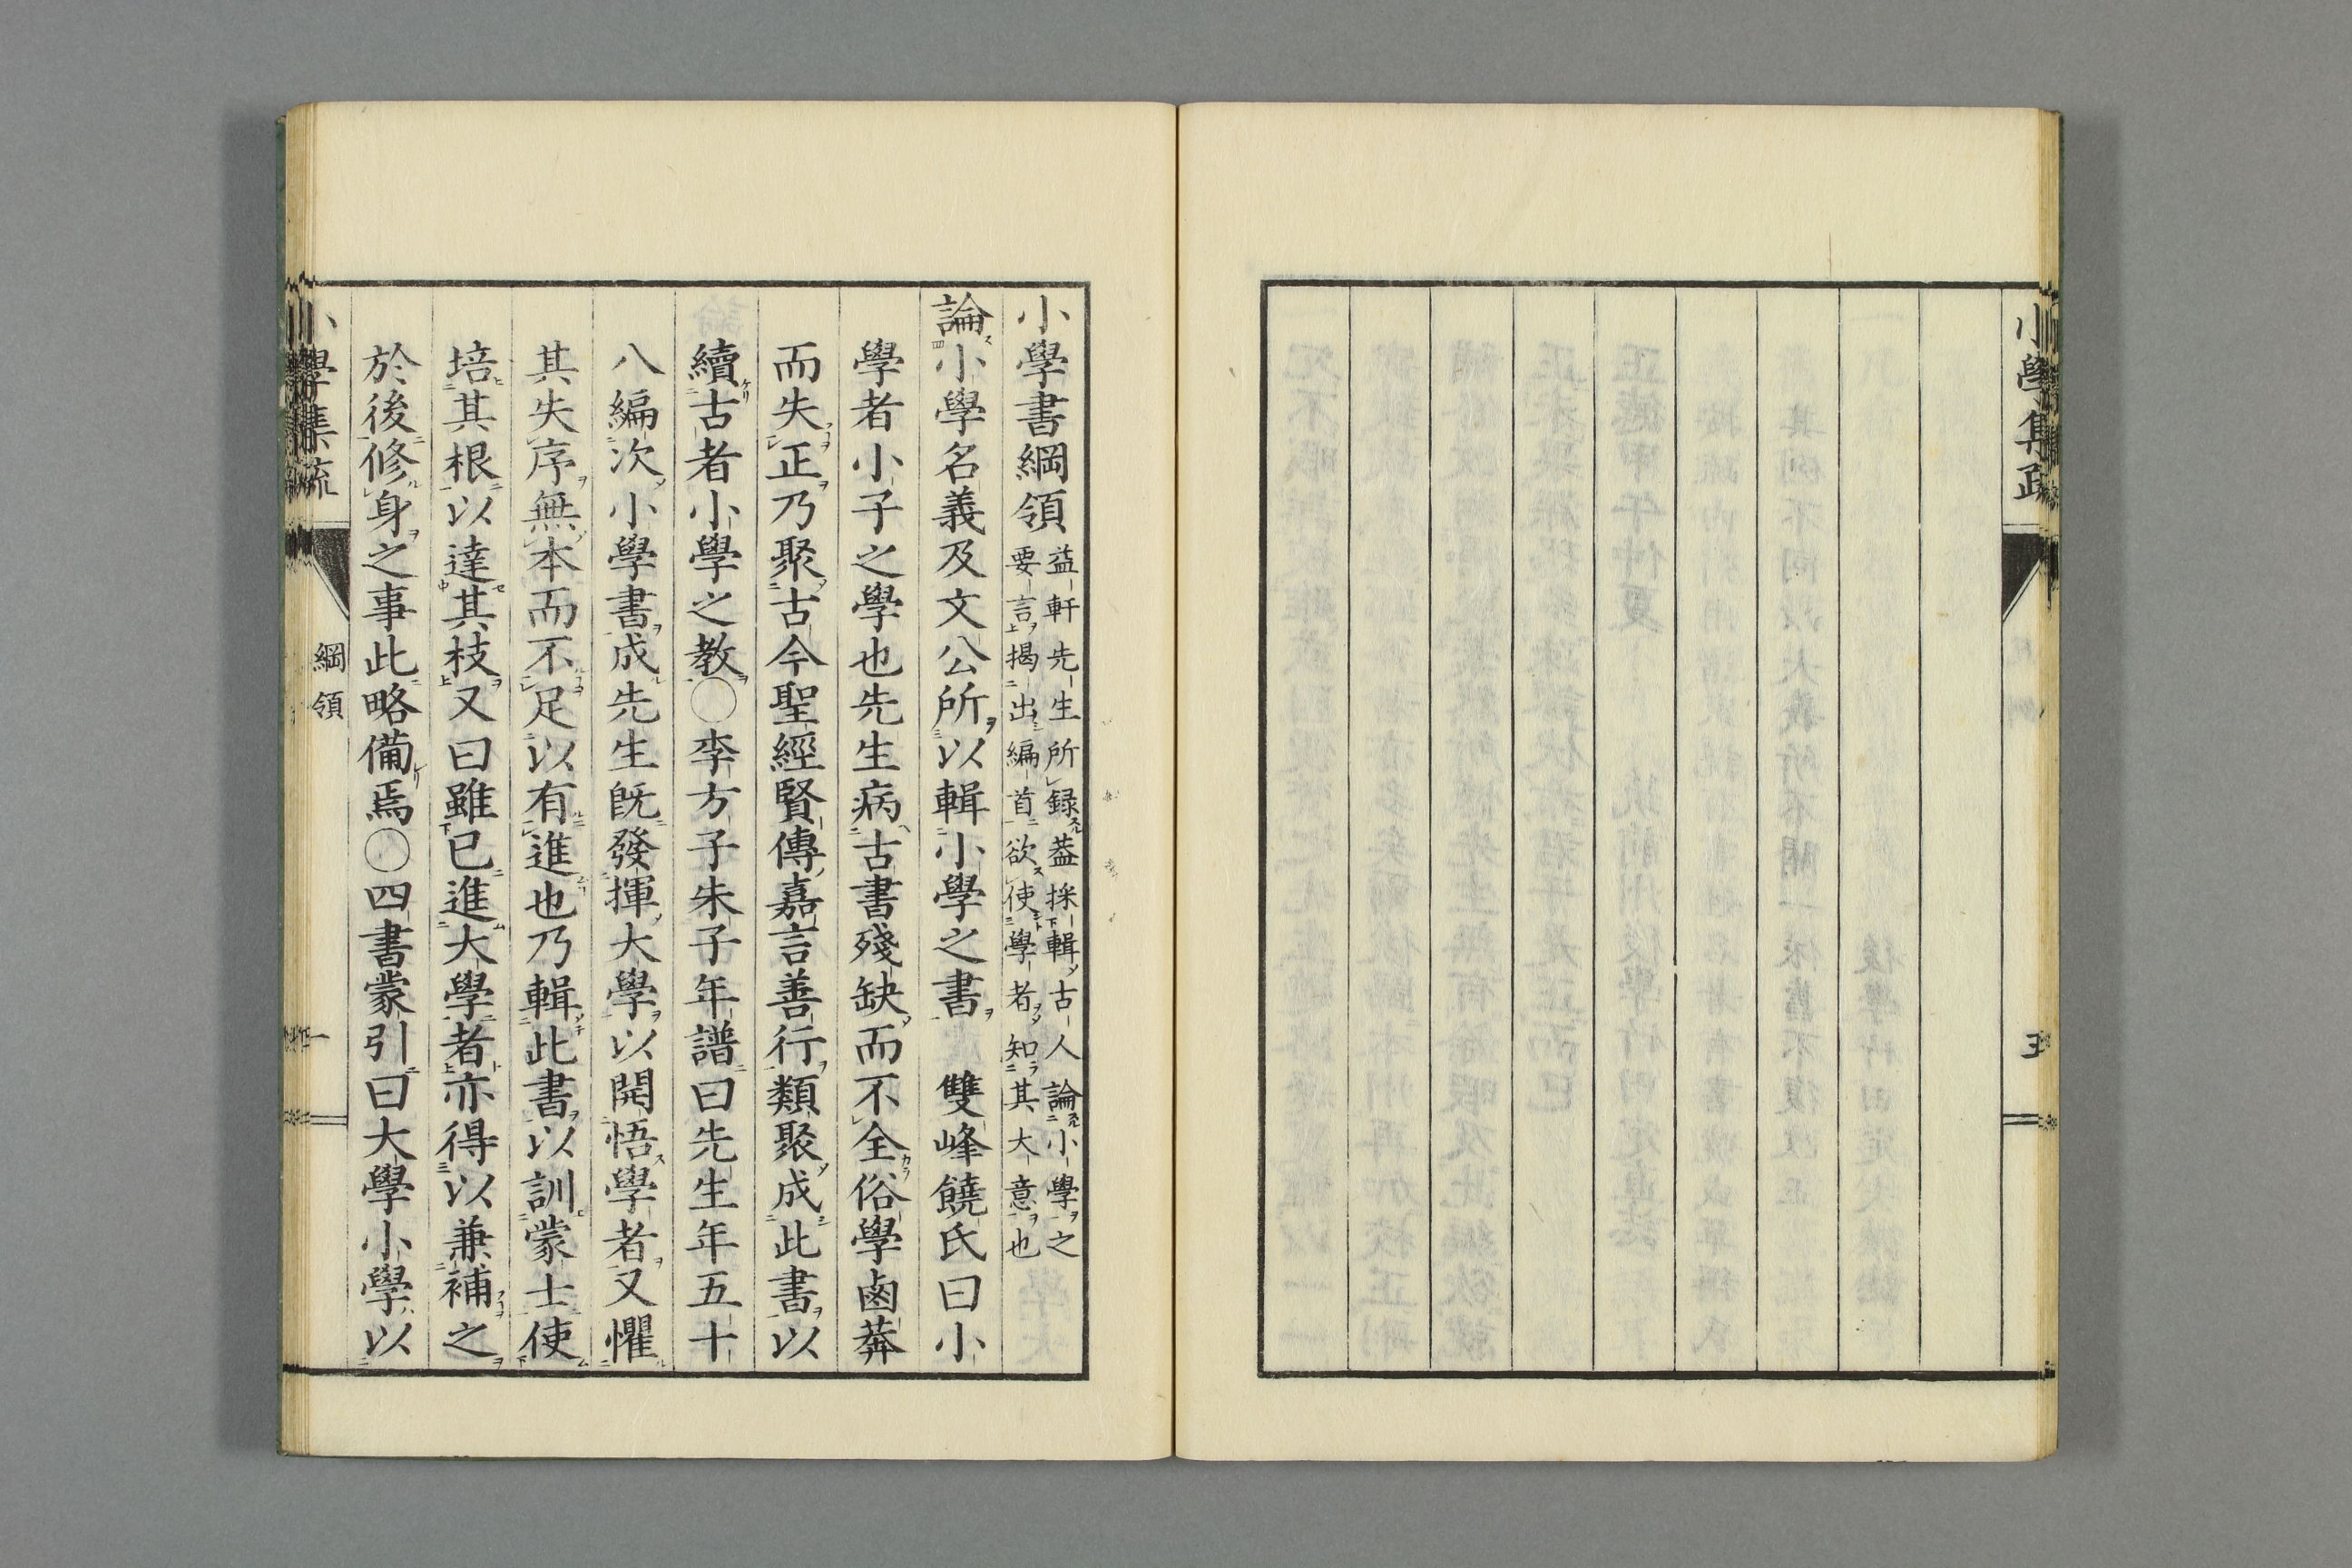 小學集疏
小學書綱領 益軒先生所録葢採輯古人論小學之
要言揭出編首欲使學者知其大意也
論小學名義及文公所以輯小學之書 雙峰饒氏曰小
學者小子之學也先生病古書殘缺而不全俗學鹵莽
而失正乃聚古今聖經賢傳嘉言善行類聚成此書以
續古者小學之教○李方子朱子年譜曰先生年五十
八編次小學書成先生既發揮大學以開悟學者又懼
其失序無本而不足以有進也乃輯此書以訓蒙士使
培其根以達其枝又曰雖已進大學者亦得以兼補之
於後修身之事此略備焉○四書蒙引曰大學小學以
小學集疏 綱領 一